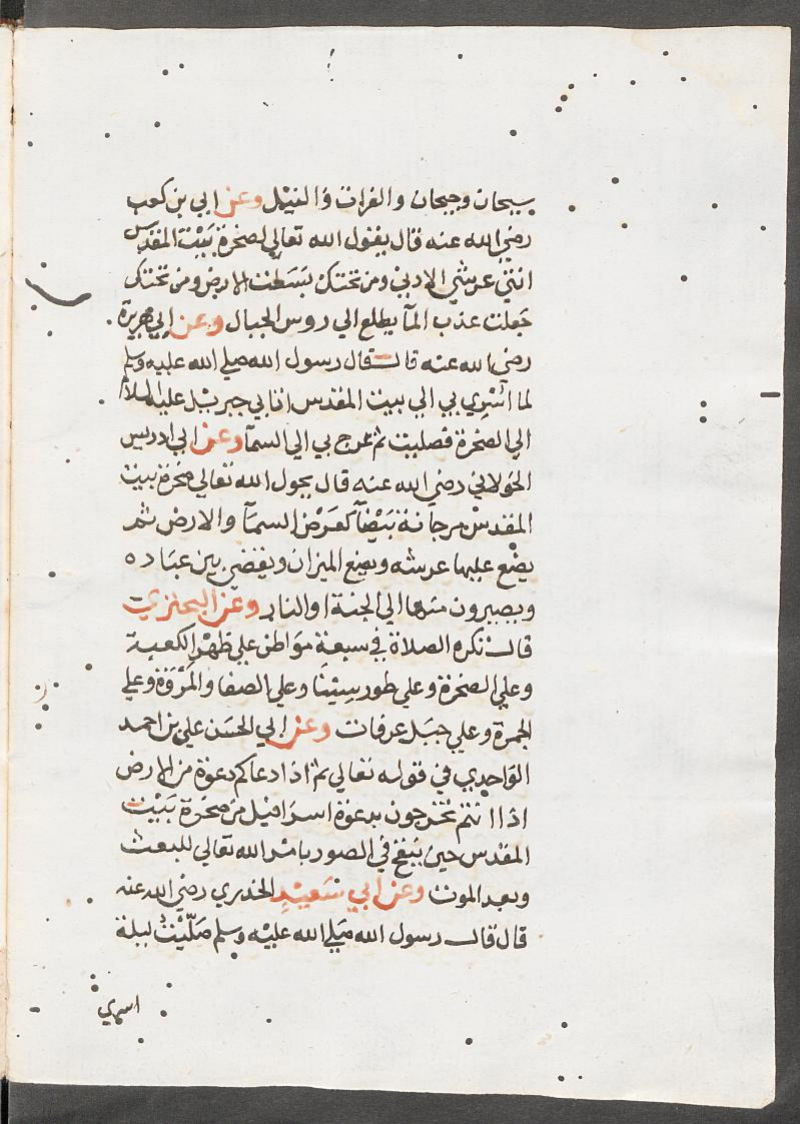 سيحان وجيحان والفرات والنيْل وعن ابي بن كعب
رضي الله عنه قال يقول الله تعالي لصخرة بَيْت المقدس
انتي عرشي الادني ومن تحتك بسَطت الارض ومن تحتك
جَعلت عذب المآ يطلع الي روس الجبال وعن ابي هريرة
رضي الله عنه قال قال رسول الله صلي الله عليه وسلم
لما اسْرِي بي الي بيت المقدس اتا بي جبريْل عليه السلام
الي الصخرة فصليت ثم عرج بي الي السمآ وعن ابي ادريس
الخولاني رضي الله عنه قال يحول الله تعالي صخرة بيت
المقدس مرجانة بَيْضآ كعَرْض السمَآ والارض ثم
يضع عليها عرشه ويضع الميزان ويقضي بين عبَاده
ويصيرون منها الي الجنة او النار وعن البحتري
قال نكره الصلاة في سبعة موَاطن علي ظهْر الكعبة
وعلي الصخرة وعلي طور سِيْنَا وعلي الصفا والمَرْوَة وعلي
الجمرة وعلي جبَل عرفات وعن ابي الحسَن علي بن احمد
الوَاحِدي في قوله تعالي ثم اذا دعاكم دعوَة من الارض
اذا انتم تخرجون بدعوَة اسرافيل من صَخرَة بَيْت
المقدس حين ينفخ في الصور بامْر الله تعالي للبعث
وبعد الموت وعن ابي سَعِيْدٍ الخدري رضي الله عنه
قال قال رسول الله صَلي الله عليْه وسلم صَلّيْتُ ليلة
اسري